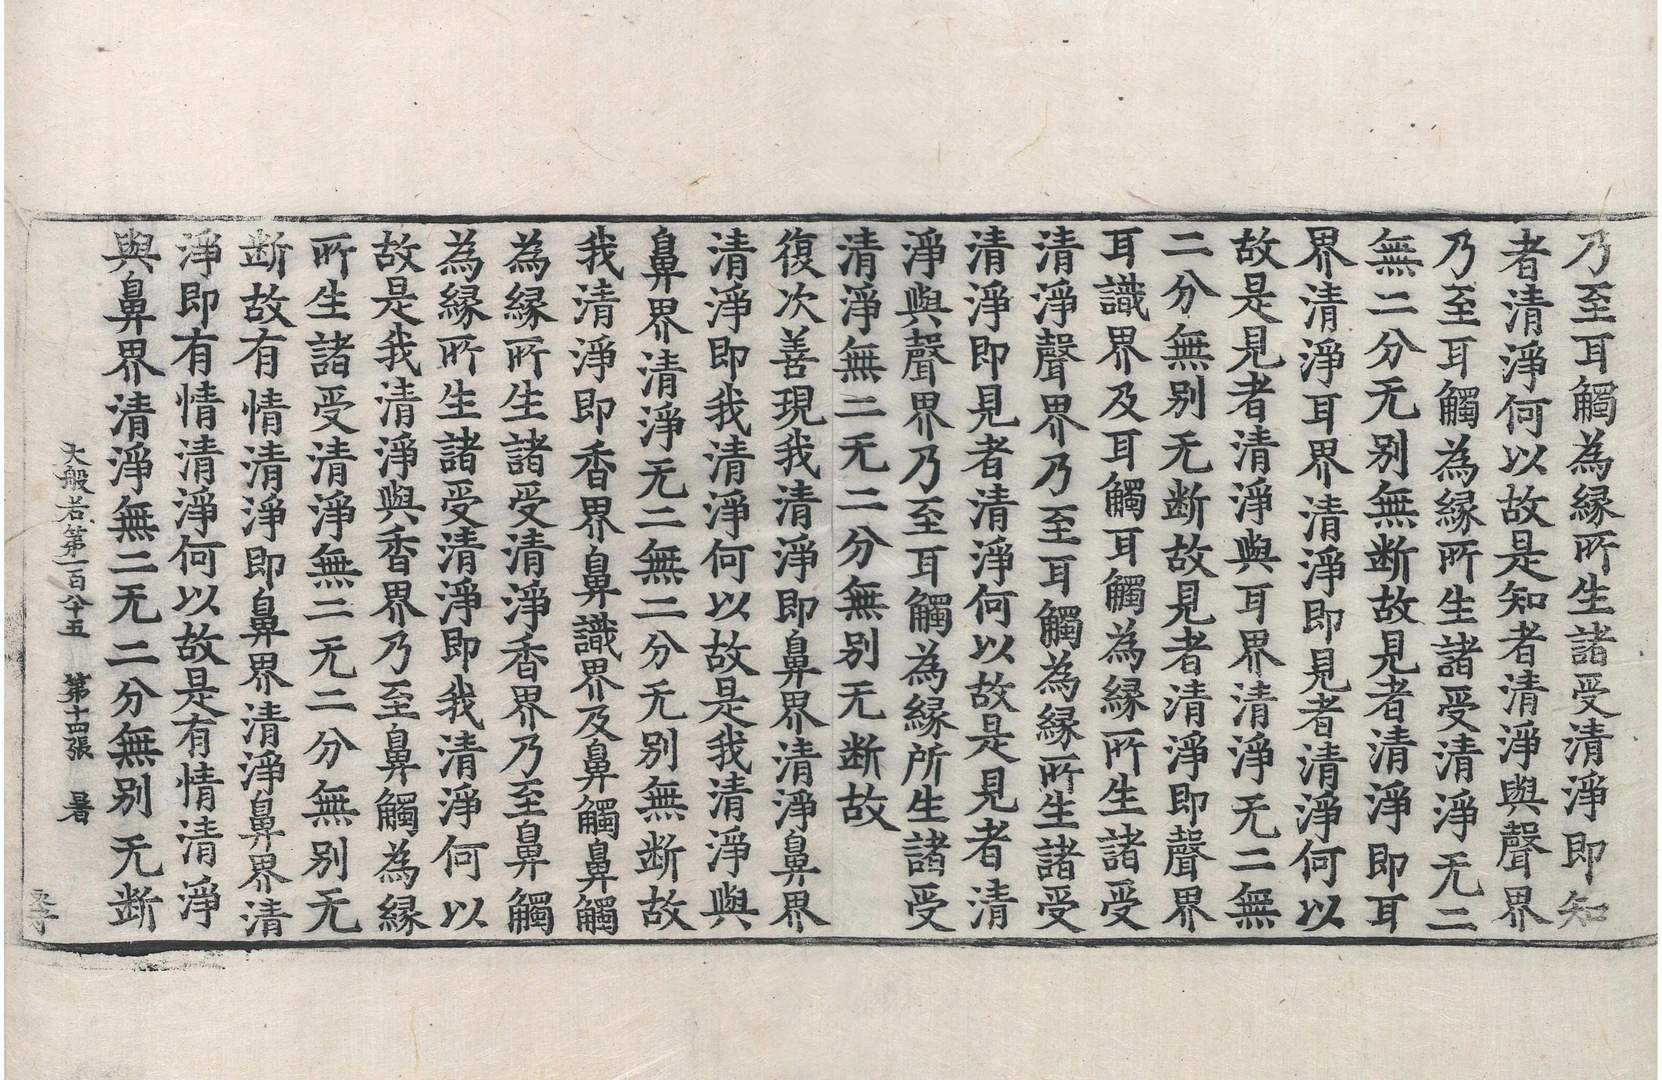 乃至耳觸為縁所生諸受清淨即知
者清淨何以故是知者清淨與聲界
乃至耳觸為縁所生諸受清淨无二
無二分无别無断故見者清淨即耳
界清淨耳界清淨即見者清淨何以
故是見者清淨與耳界清淨无二無
二分無别无断故見者清淨即聲界
耳識界及耳觸耳觸為縁所生諸受
清淨聲界乃至耳觸為縁所生諸受
清淨即見者清淨何以故是見者清
淨與聲界乃至耳觸為縁所生諸受
清淨無二无二分無别无断故
復次善現我清淨即鼻界清淨鼻界
清淨即我清淨何以故是我清淨與
鼻界清淨无二無二分无别無断故
我清淨即香界鼻識界及鼻觸鼻觸
為縁所生諸受清淨香界乃至鼻觸
為縁所生諸受清淨即我清淨何以
故是我清淨與香界乃至鼻觸為縁
所生諸受清淨無二无二分無别无
断故有情清淨即鼻界清淨鼻界清
淨即有情清淨何以故是有情清淨
與鼻界清淨無二无二分無别无断
大般若第一百八十五 第十四張 暑